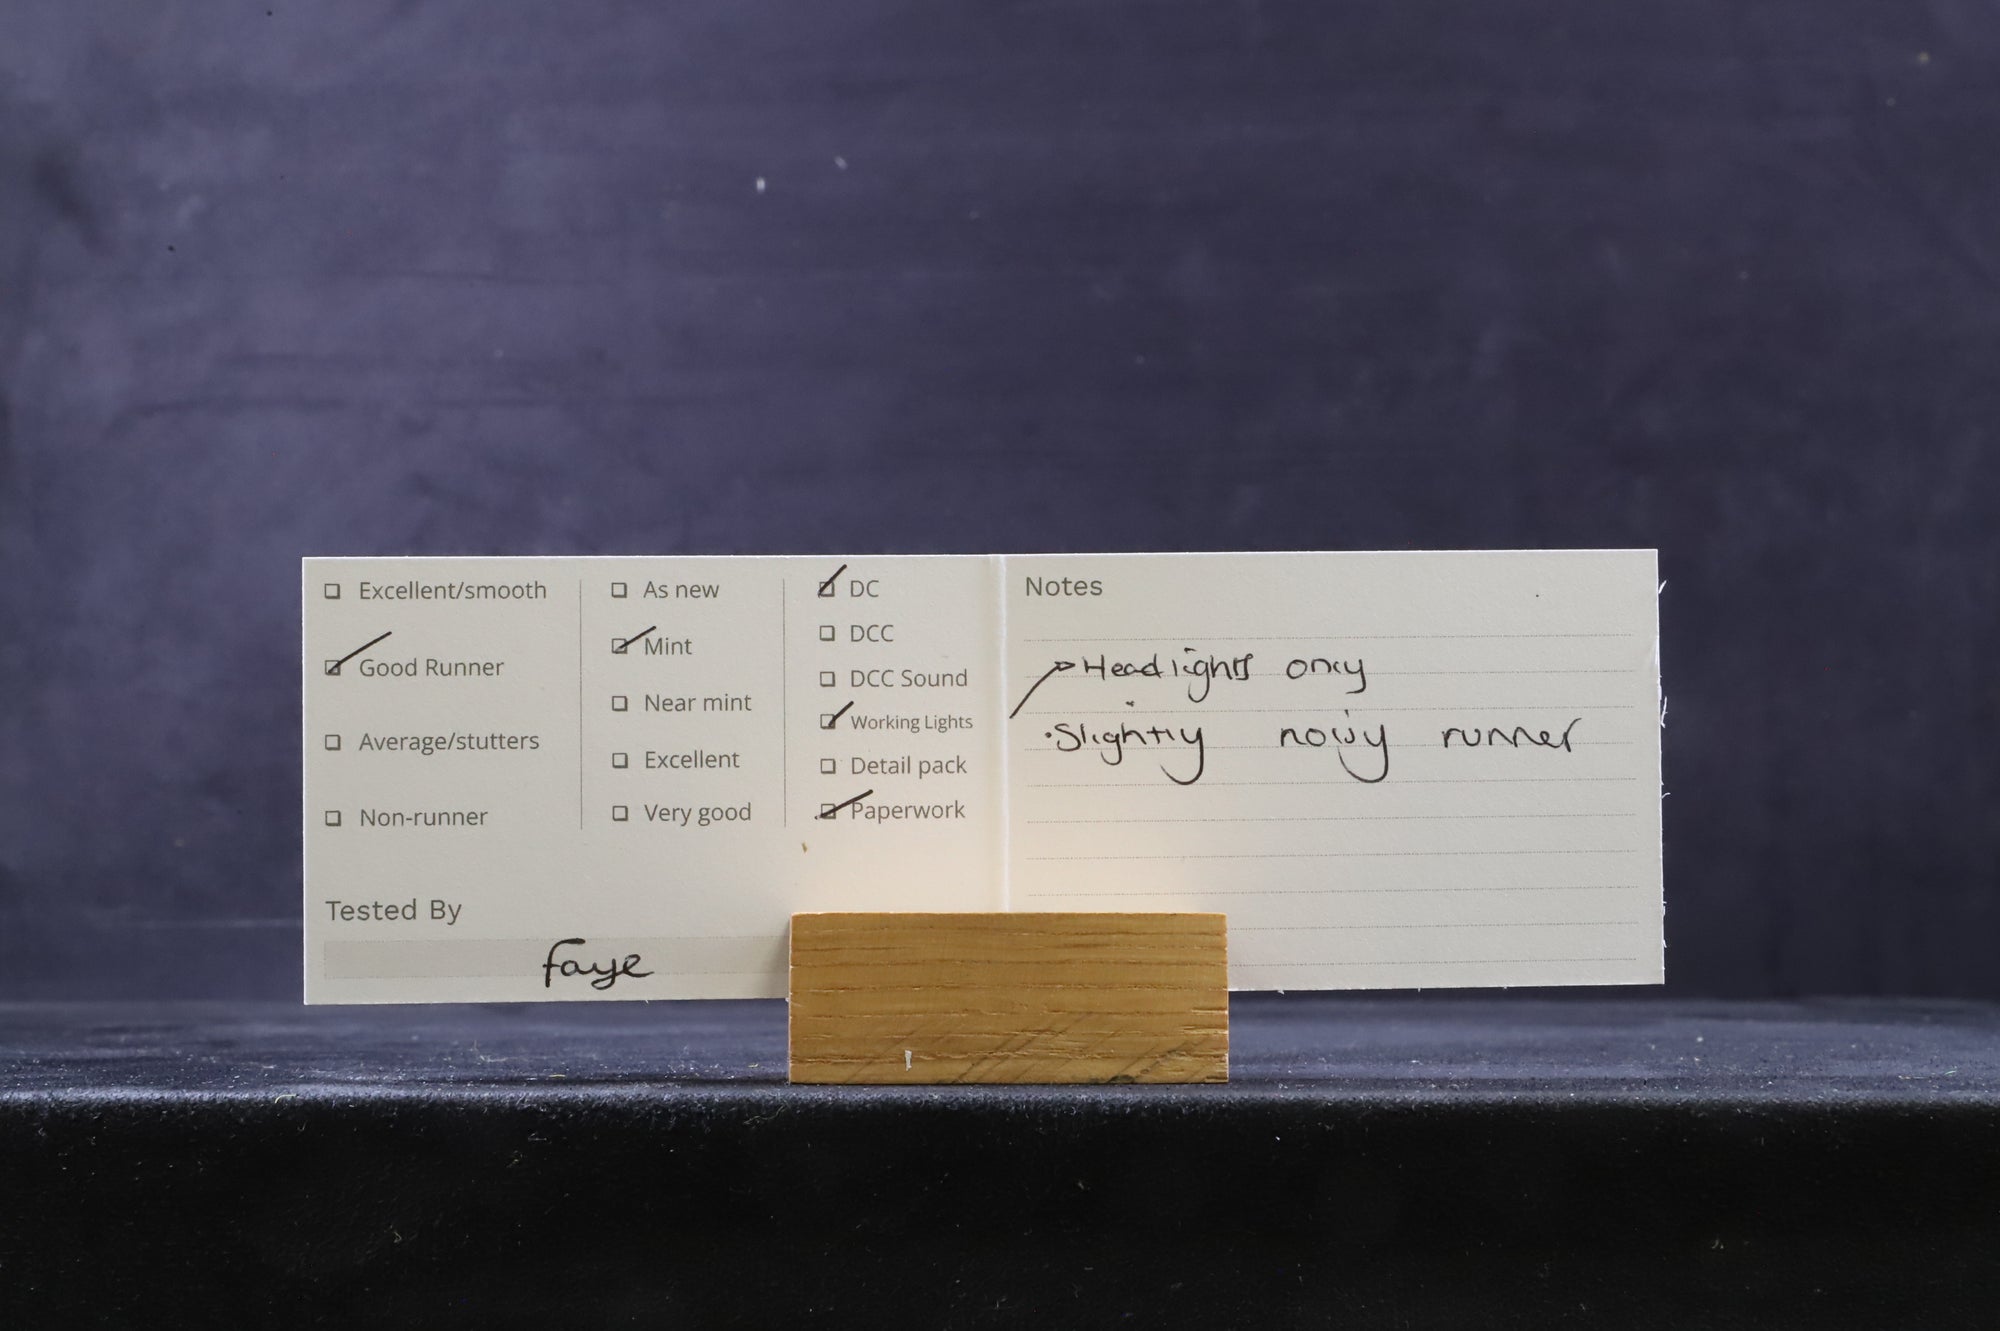 Excellent/smooth
Good Runner
Average/stutters
Non-runner
As new
Mint
Near mint
Excellent
Very good
DC
DCC
DCC Sound
Working Lights
Detail pack
Paperwork
Tested By
Faye
Notes
Headlights only
Slightly noisy runner